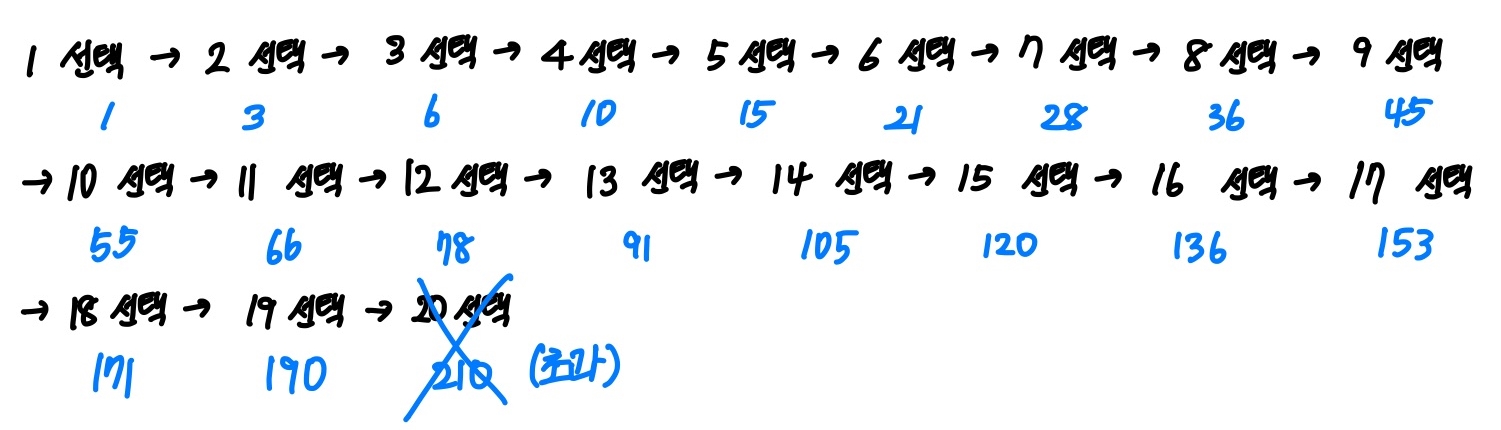 1 선택 → 2 선택 → 3 선택 → 4 선택 → 5 선택 → 6 선택 → 7 선택 → 8 선택 → 9 선택
1 3 6 10 15 21 28 36 45
→ 10 선택 → 11 선택 → 12 선택 → 13 선택 → 14 선택 → 15 선택 → 16 선택 → 17 선택
55 66 78 91 105 120 136 153
→ 18 선택 → 19 선택 → 20 선택
171 190 210 (초과)